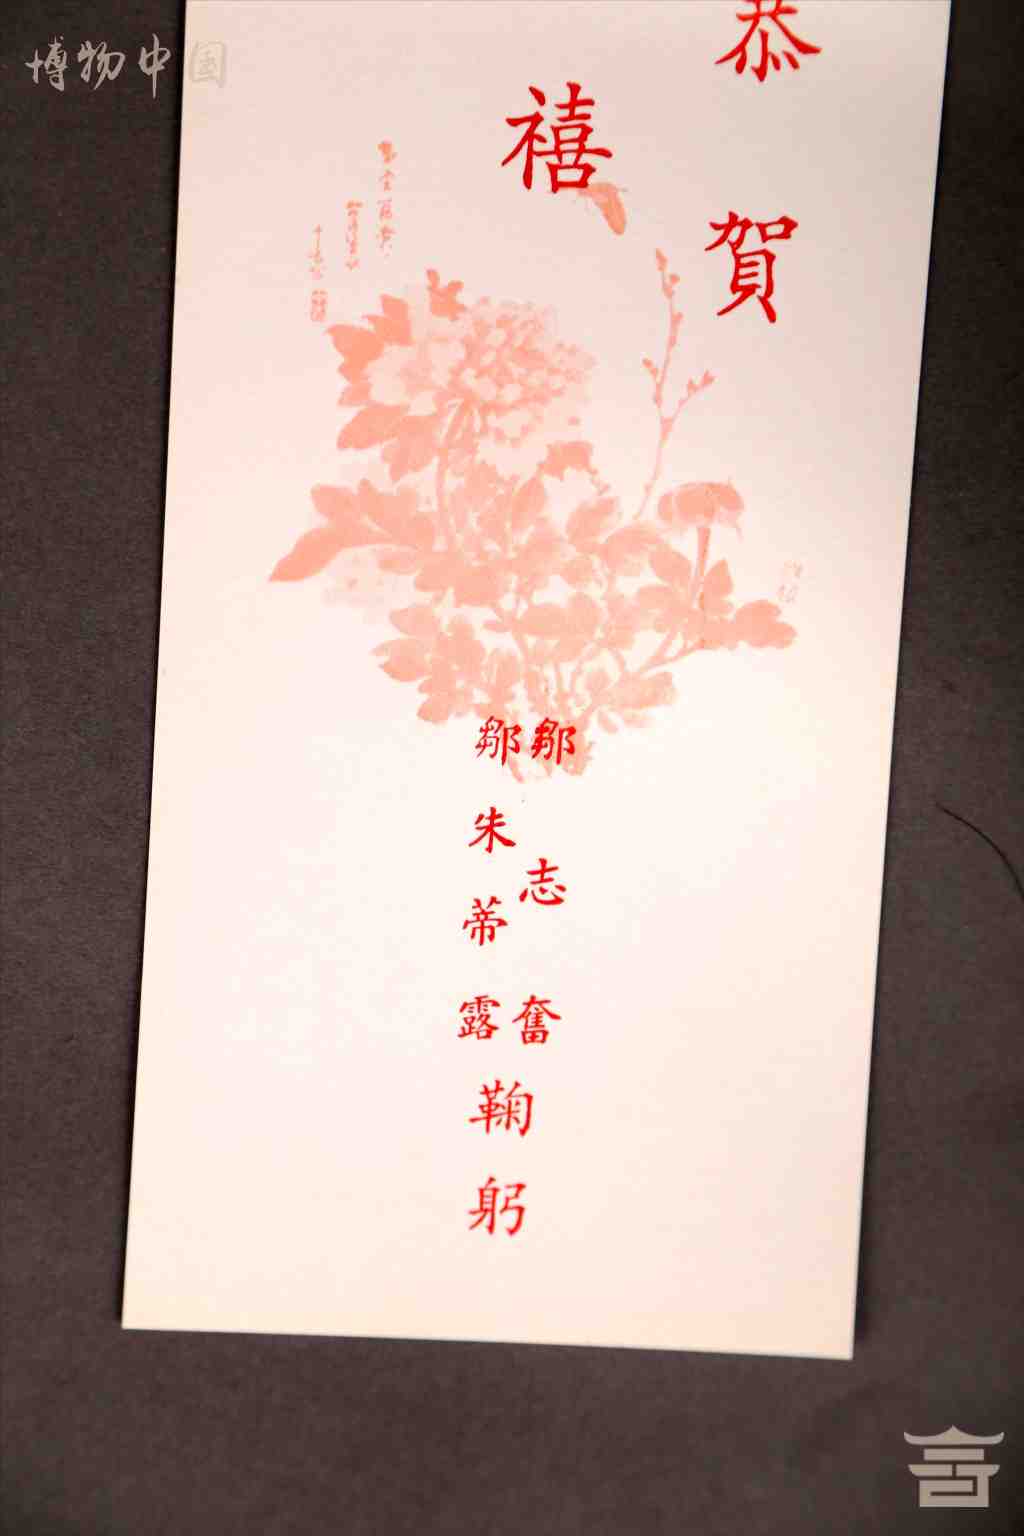 博物中国
恭賀
禧
鄒志奮
鄒朱蒂露
鞠躬